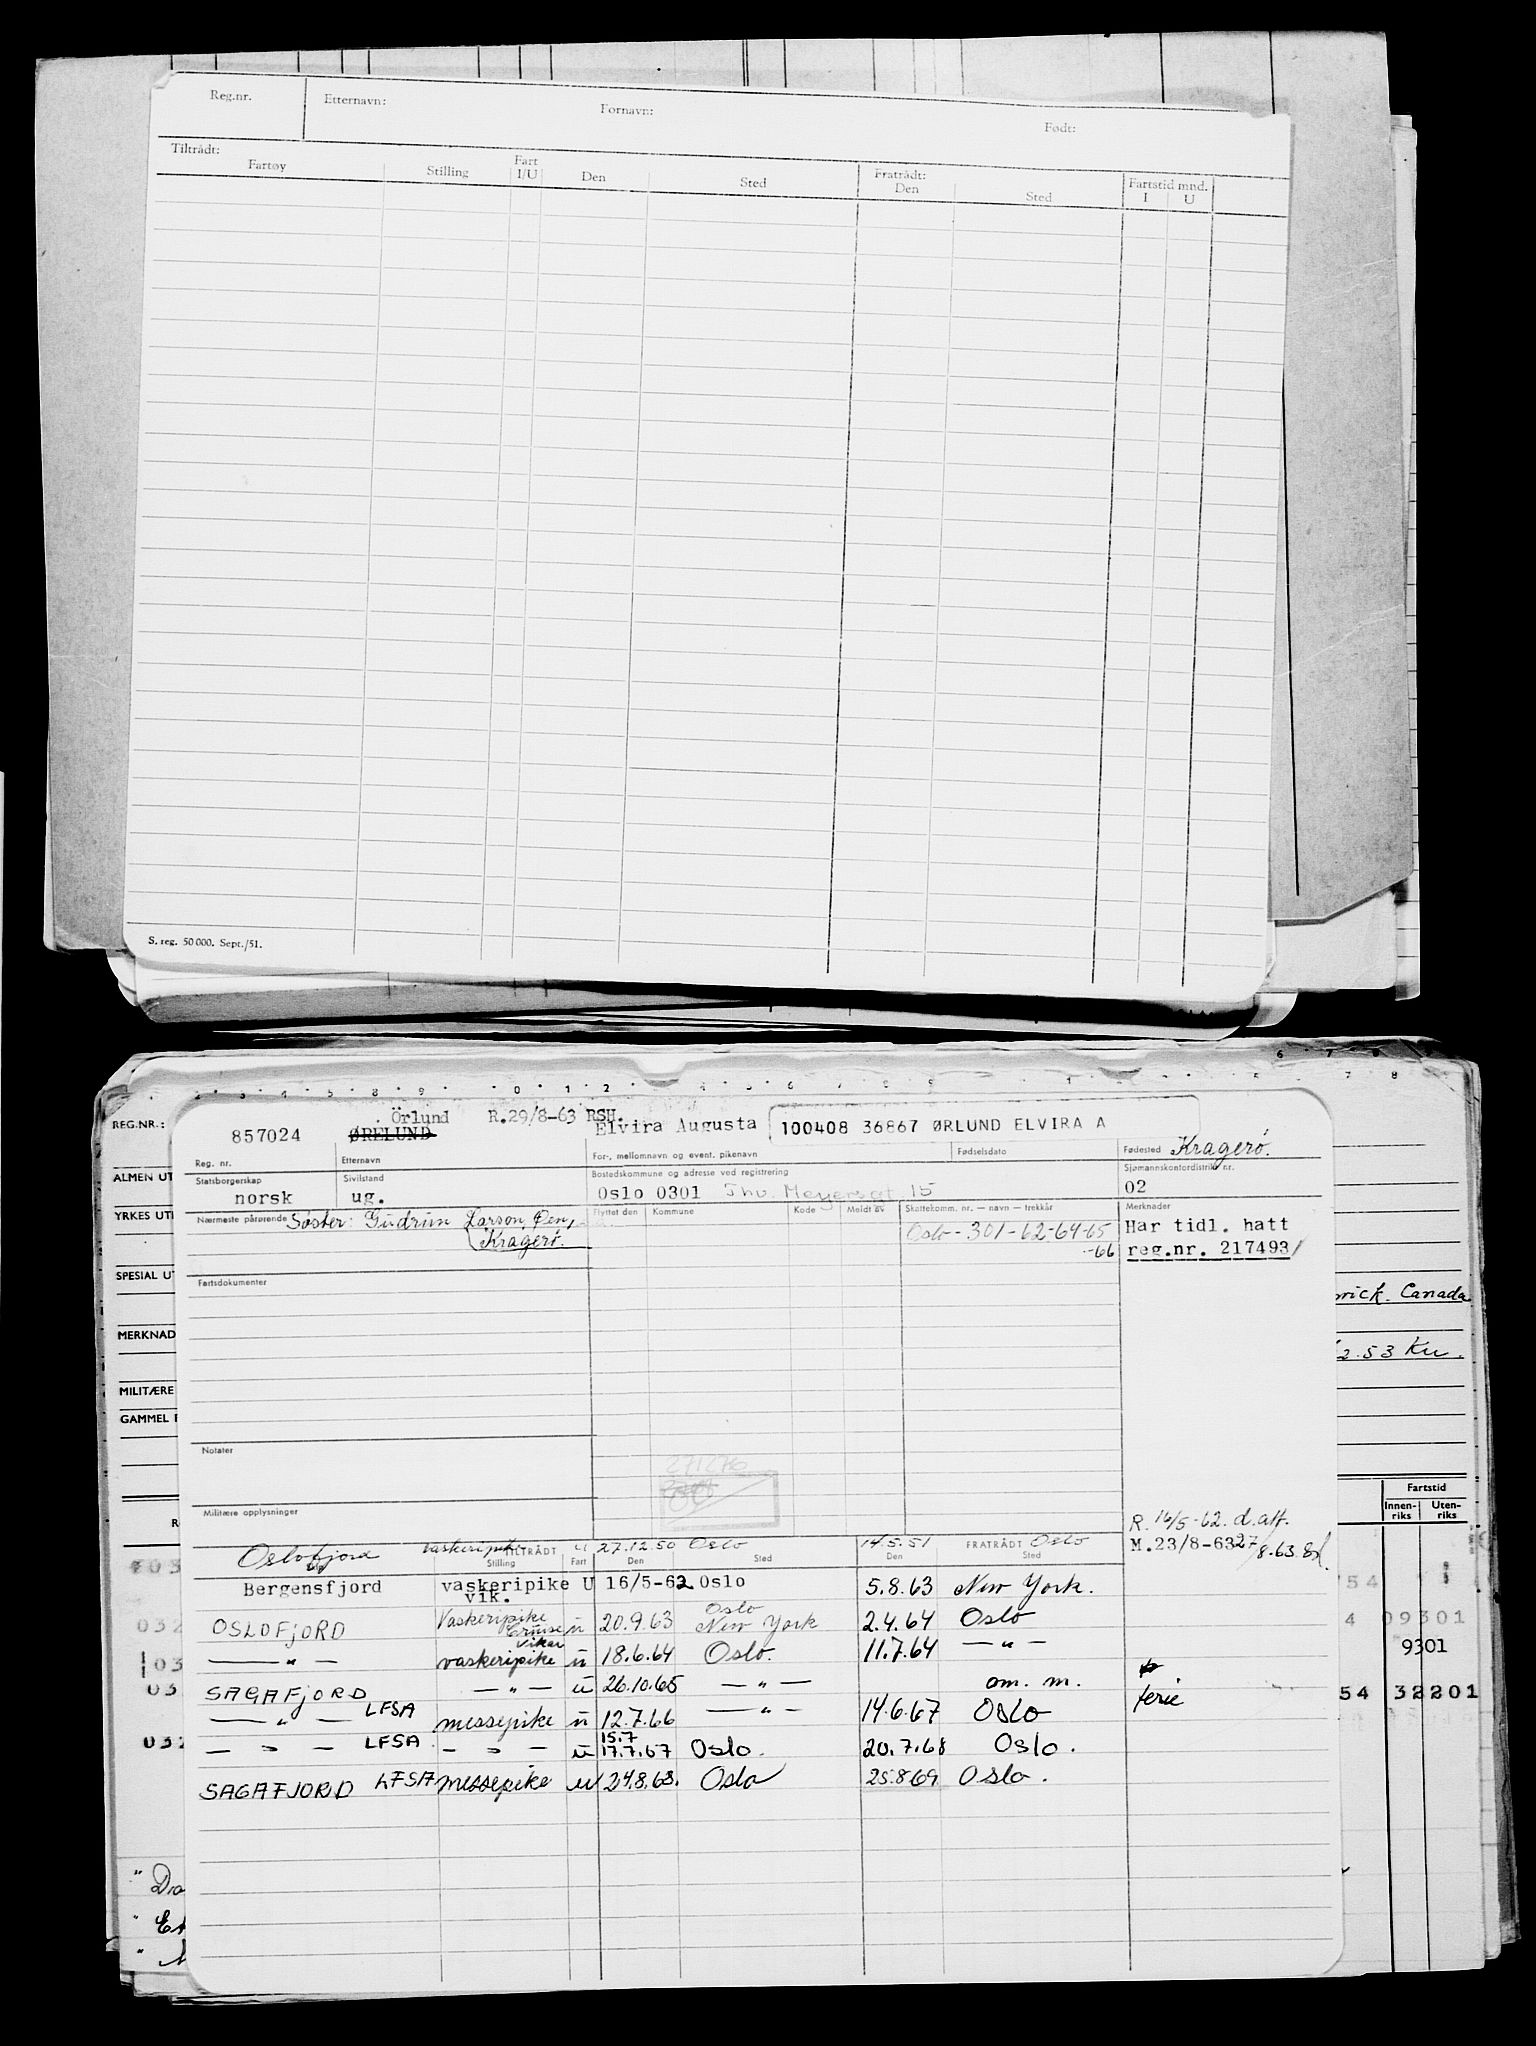 Reg.nr. Etternavn: Fornavn: Født:
Tiltrådt: Fratrådt: Fartstid mnd.
Fartøy Stilling Fart I/U Den Sted Den Sted I U
S. reg. 50 000. Sept./51.
REG.NR.:
ALMEN UT
YRKES UT
SPESIAL U
MERKNAD
MILITÆRE
GAMMEL
Örlund R.29/8-63 RSH.
857024 ØRELUND Elvira Augusta 100408 36867 ØRLUND ELVIRA A Kragerø.
Reg. nr. Etternavn For-, mellomnavn og event. pikenavn Fødselsdato Fødested
Statsborgerskap Sivilstand Bostedskommune og adresse ved registrering Sjømannskontordistrikt nr.
norsk ug. Oslo 0301 Thv. Meyersgt. 15 02
Nærmeste pårørende Søster: Gudrun Larson, Øen, Flyttet den Kommune Kode Meldt av Skattekomm. nr. — navn — trekkår Merknader
Kragerø. Oslo-301-62-64-65 Har tidl. hatt
-66 reg.nr. 217493
Fartsdokumenter
Canada
2.53 Ku.
Notater
271276
Militære opplysninger
Fartstid
Innen-riks Uten-riks
R. 16/5-62. d.aft.
M.23/8-63 27/8.63.
Oslofjord vaskeripike u 27.12.50 Oslo 14.5.51 Oslo
TILTRÅDT FRATRÅDT
Stilling Fart Den Sted Den Sted
Bergensfjord vaskeripike U 16/5-62 Oslo 5.8.63 New York.
vik.
OSLOFJORD Vaskeripike ü 20.9.63 Oslo New York 2.4.64 Oslo
Cruise
vikar
— " — vaskeripike ü 18.6.64 Oslo. 11.7.64 — " —
SAGAFJORD — " — ü 26.10.65 — " — om. m. ferie
— " — LFSA messepike ü 12.7.66 — " — 14.6.67 Oslo
15.7
— " — LFSA — " — ü 17.7.67 Oslo. 20.7.68 Oslo.
SAGAFJORD LFSA messepike u 24.8.68. Oslo 25.8.69 Oslo.
09301
9301
54 32201